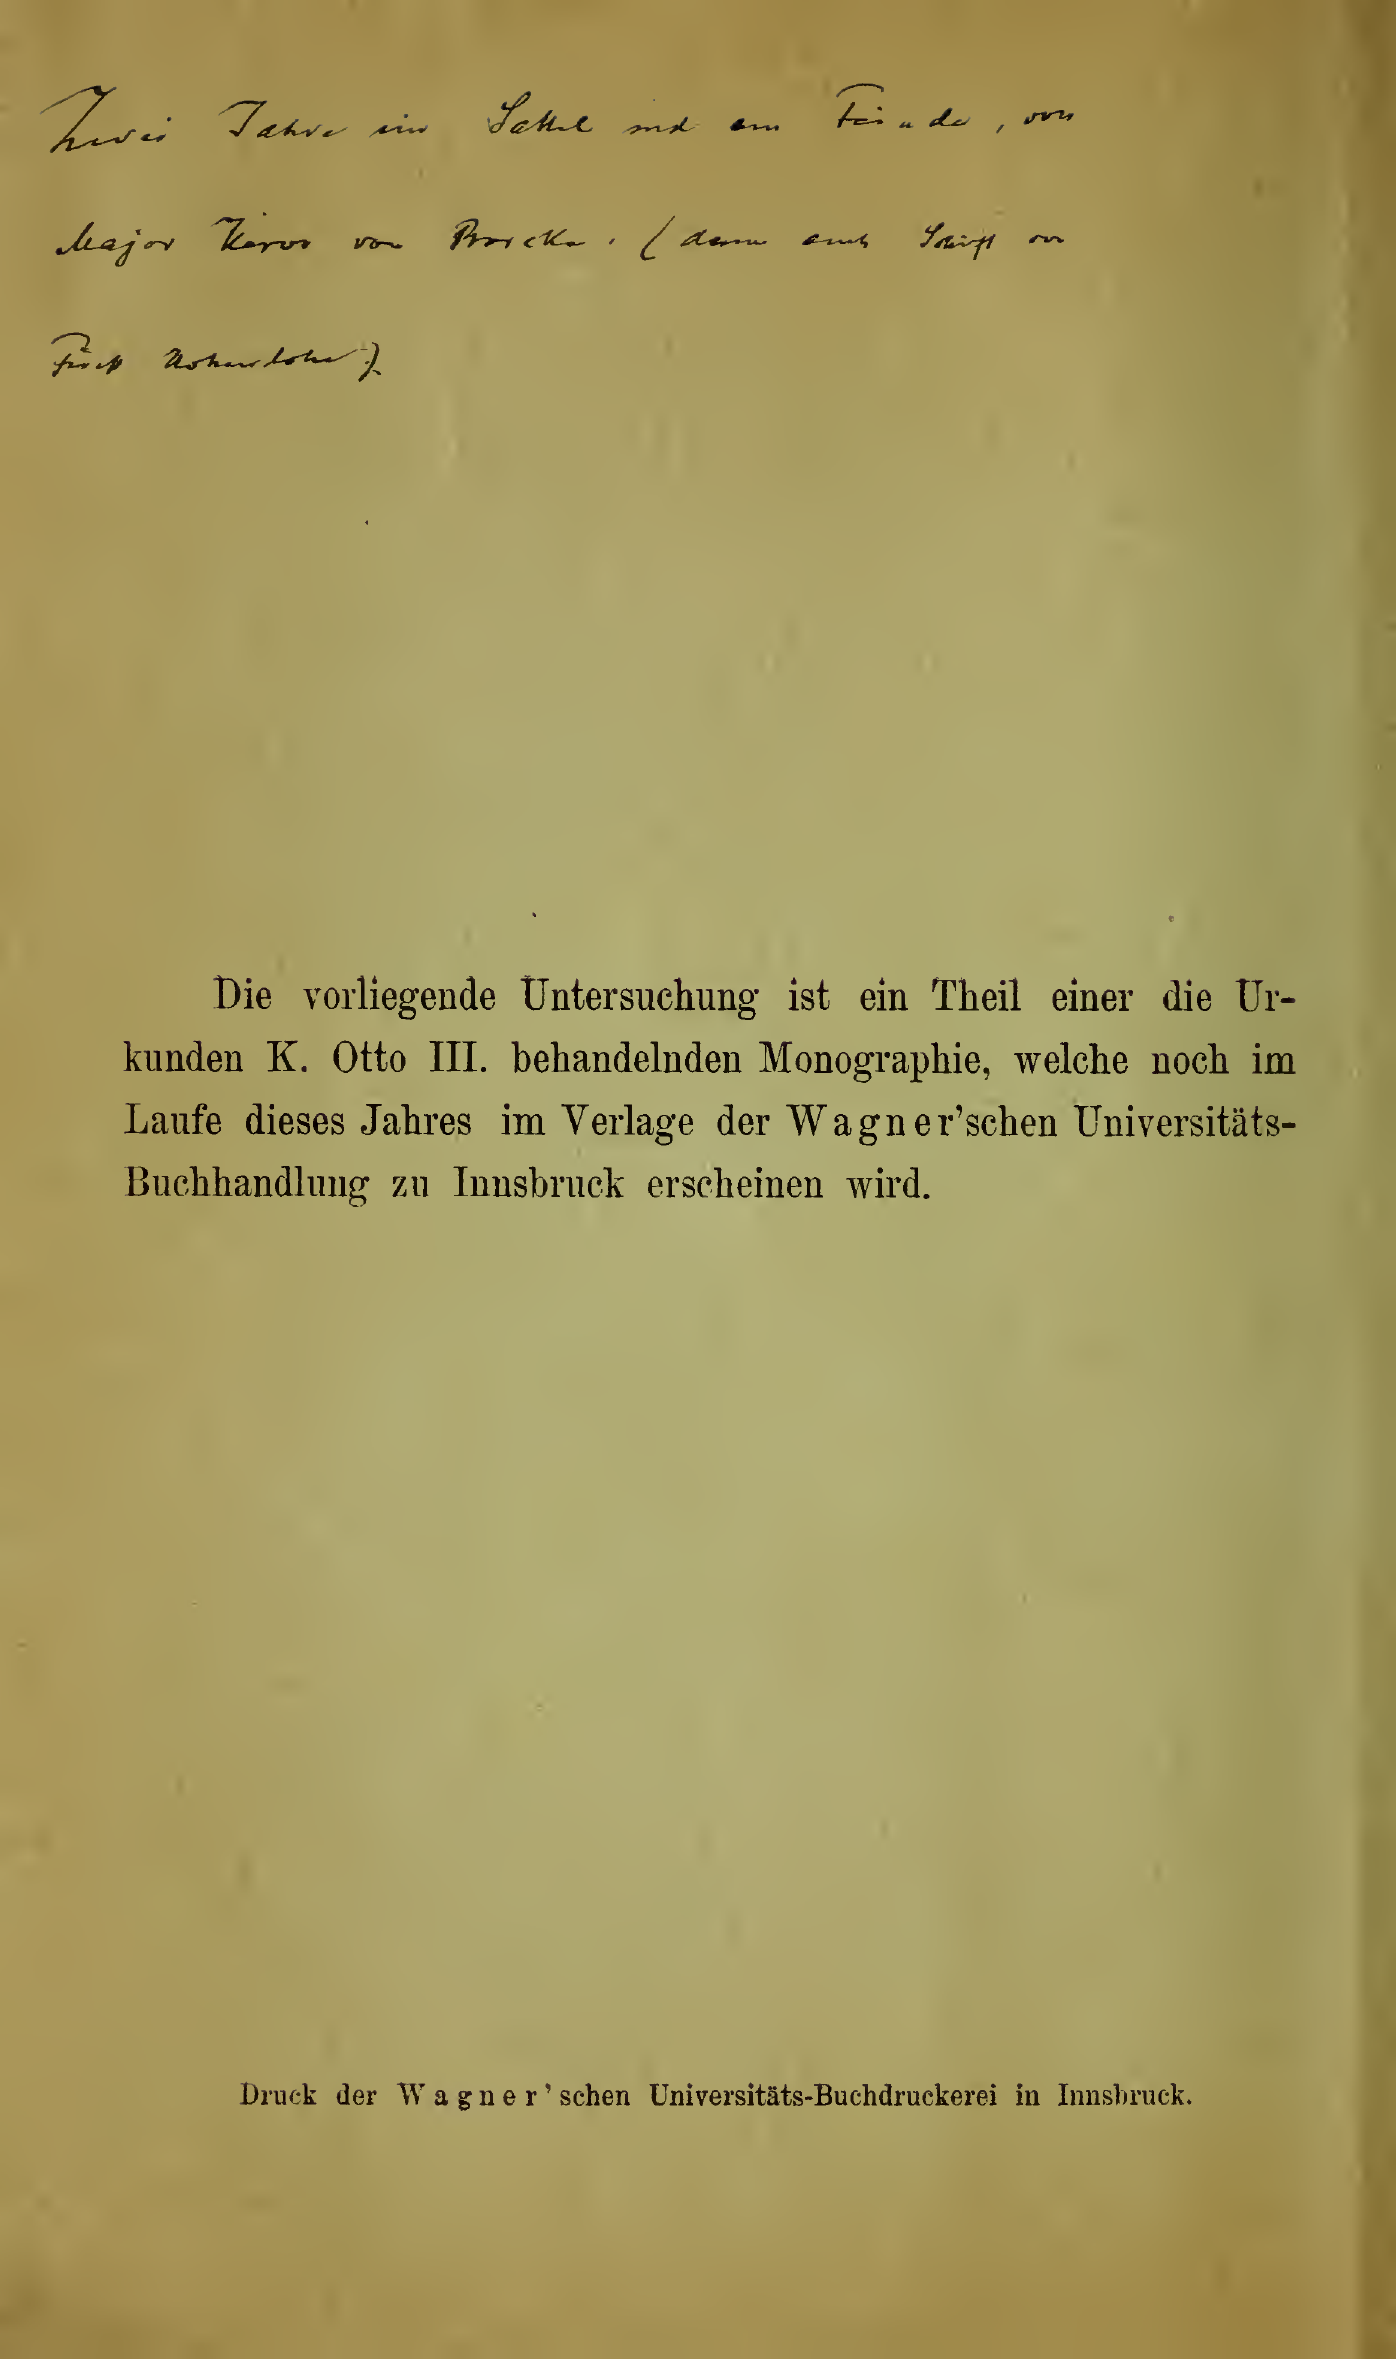 Zwei Jahre im Sattel und am Feinde, von
Major Heros von Borcke. (dann auch Schrift von
Fürst Hohenlohe.)
Die vorliegende Untersuchung ist ein Theil einer die Ur-
kunden K. Otto III. behandelnden Monographie, welche noch im
Laufe dieses Jahres im Verlage der Wagner'schen Universitäts-
Buchhandlung zu Innsbruck erscheinen wird.
Druck der Wagner'schen Universitäts-Buchdruckerei in Innsbruck.